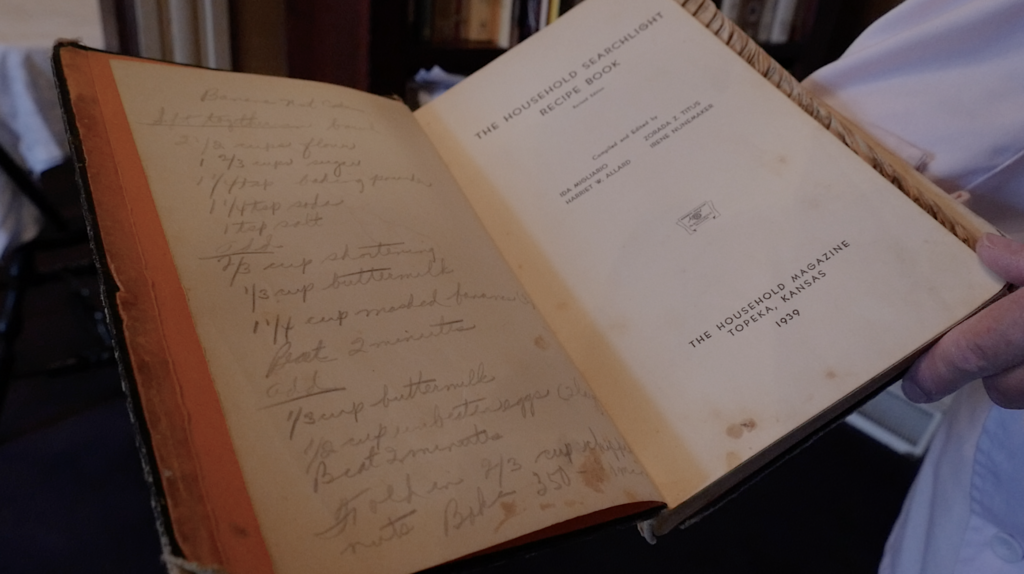 Banana Nut Cake
Sift together in bowl
2 1/2 cups flour
1 2/3 cups sugar
1 1/4 tsp baking powder
1 1/4 tsp soda
1 tsp salt
add
2/3 cup shortening
1/3 cup buttermilk
1 1/4 cup mashed bananas
Beat 2 minutes
add
1/3 cup buttermilk
1/2 cup unbeaten eggs
Beat 2 minutes
Fold in 2/3 cup chopped
nuts Bake 350
THE HOUSEHOLD SEARCHLIGHT
RECIPE BOOK
Revised Edition
Compiled and Edited by
IDA MIGLIARIO ZORADA Z. TITUS
HARRIET W. ALLARD IRENE NUNEMAKER
THE HOUSEHOLD MAGAZINE
TOPEKA, KANSAS
1939